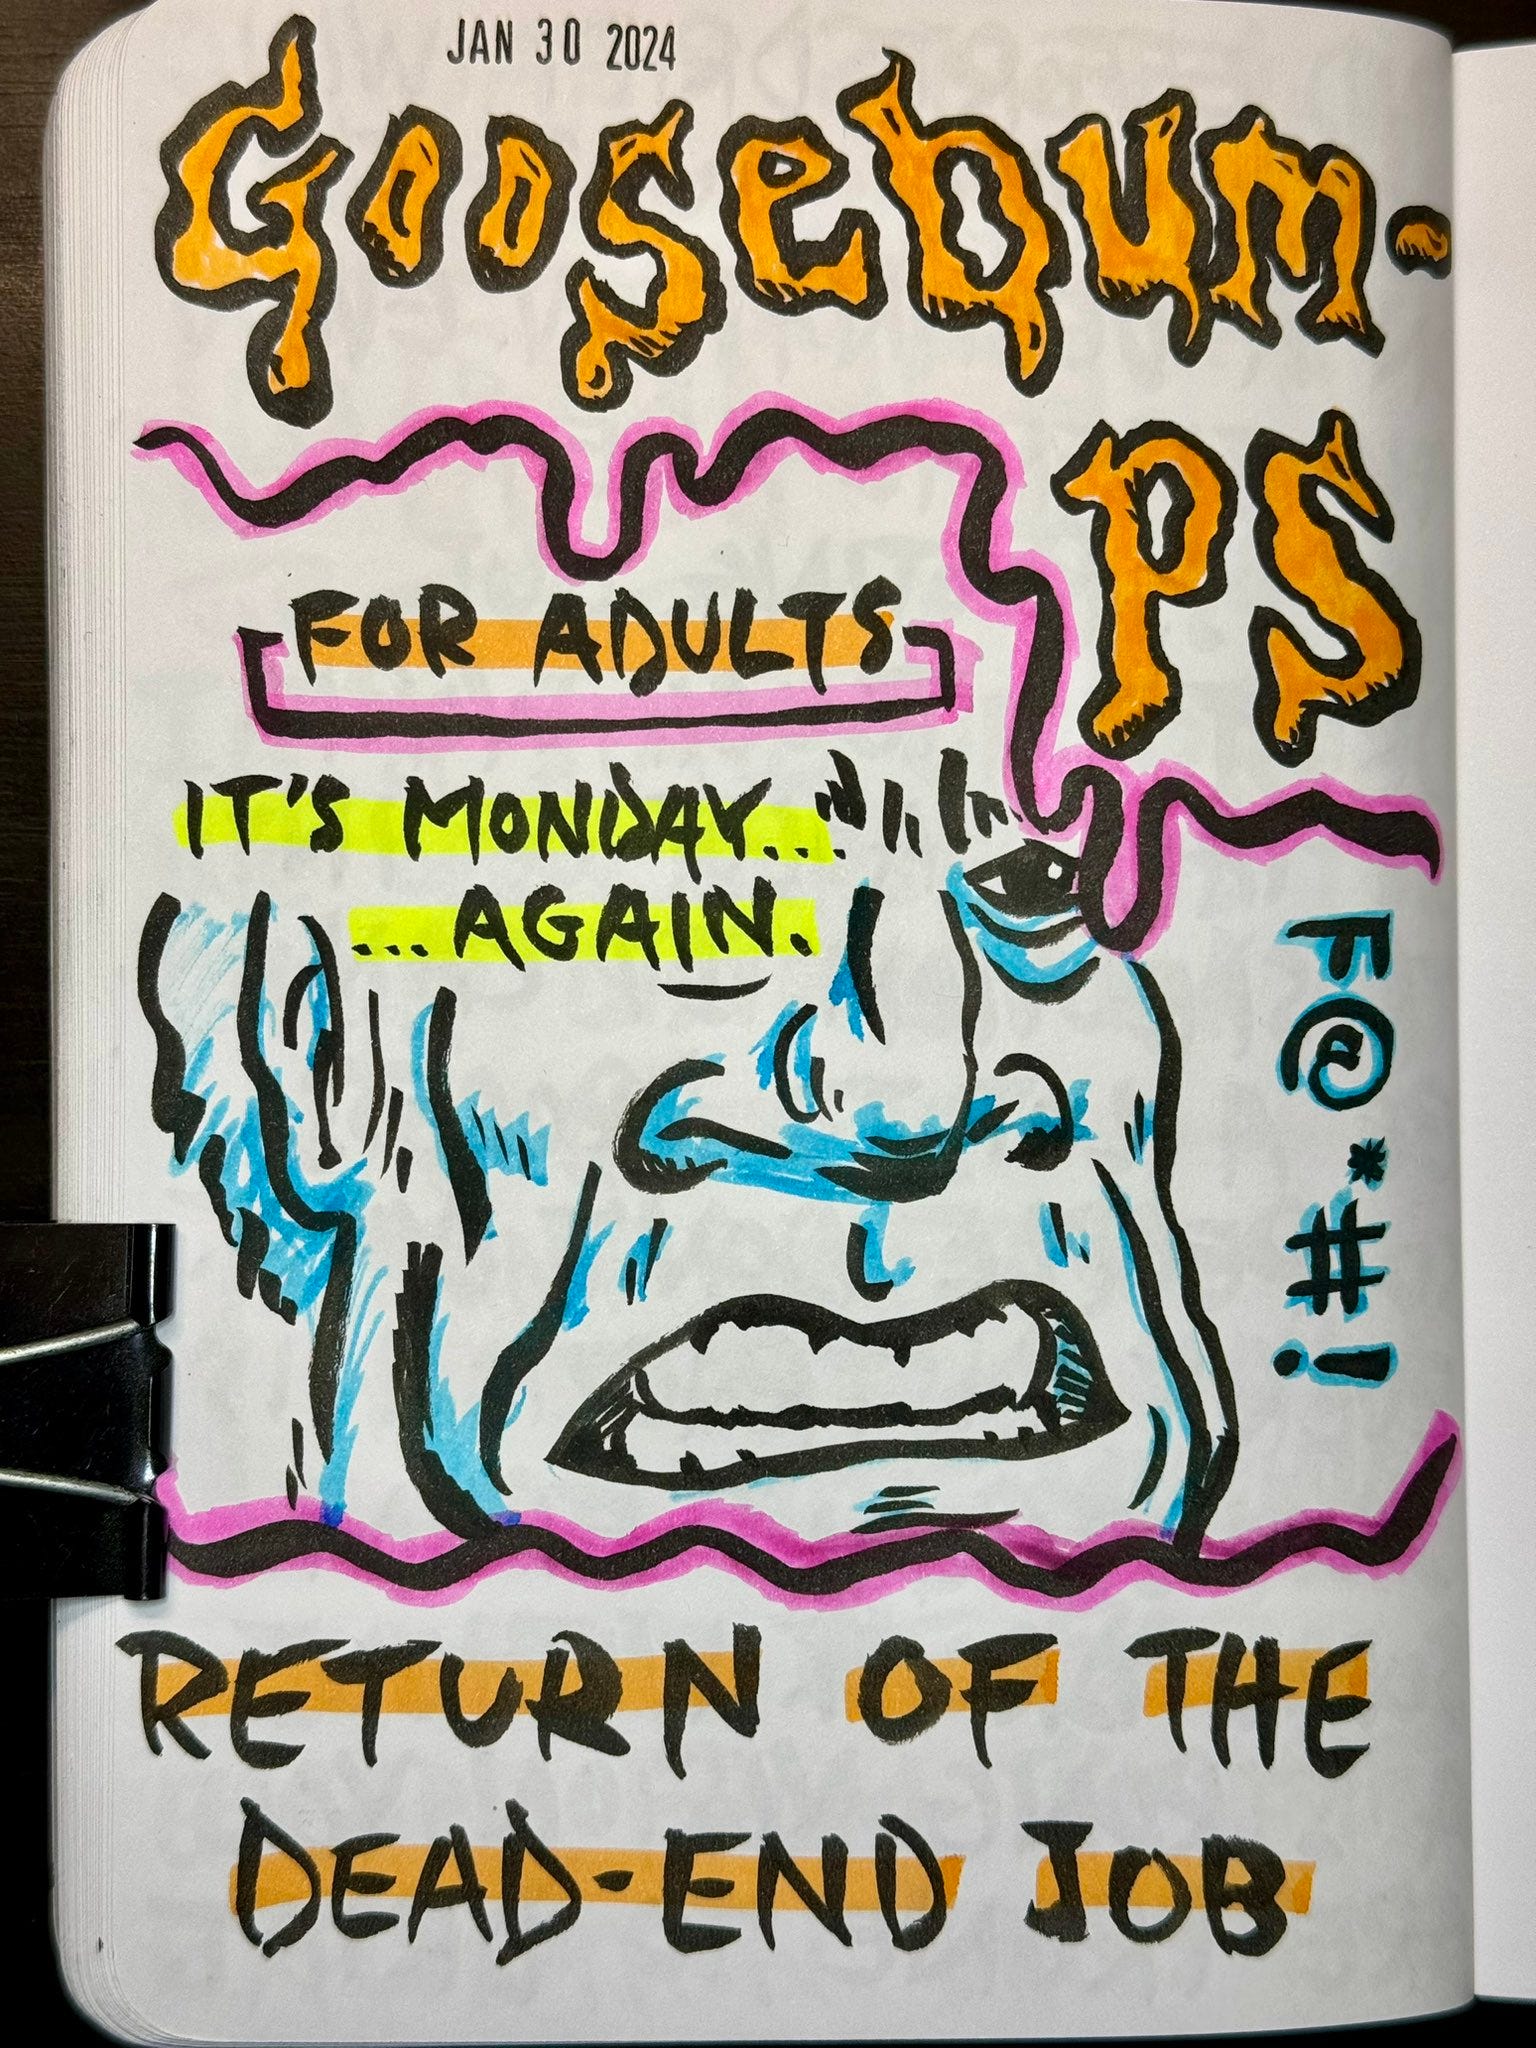 JAN 30 2024
GOOSEBUM-
PS
FOR ADULTS
IT'S MONDAY...
...AGAIN.
F@*#!
RETURN OF THE
DEAD-END JOB